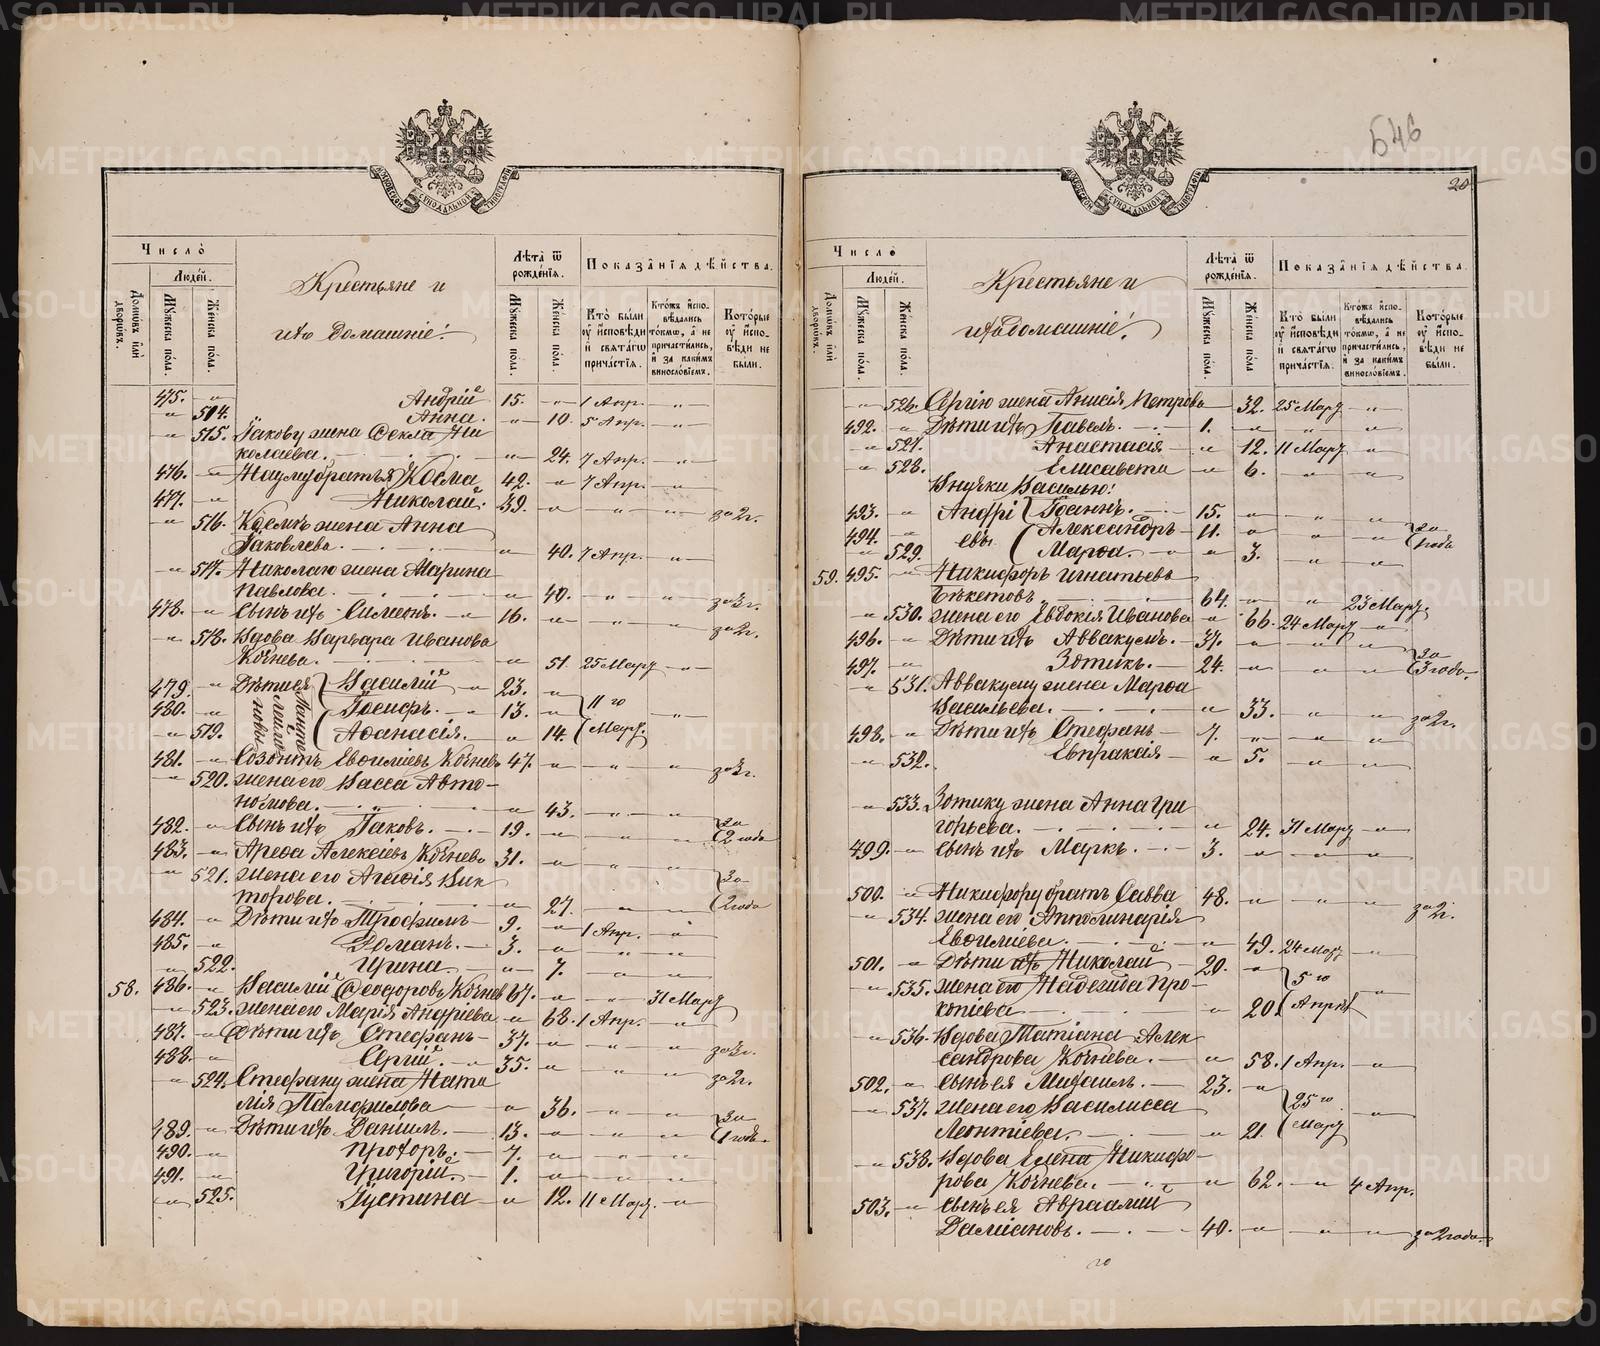 546
20
Число̀
Люде́й.
Домѡ́въ и҆лѝ дворѡ́въ.
Мꙋ́жеска по́ла.
Же́нска по́ла.
Крестьяне и
ихъ домашніе:
Лѣ́та ѿ рожде́нїѧ.
Мꙋ́жеска по́ла.
Же́нска по́ла.
Показа́нїѧ дѣ́йства.
Кто̀ бы́ли ᲂу҆ и҆сповѣ́ди и҆ свѧта́гѡ причастїѧ.
Кто́жъ и҆спо-вѣ́дались то́кмѡ, а҆ не причасти́лись, и҆ за каки́мъ винослові́емъ.
Кото́рые ᲂу҆ и҆спо-вѣ́ди не бы́ли.
475. — Андрій 15. — 1 Апр. —
— 514. Анна. — 10. 5 Апр. —
— 515. Іакову жена Ѳекла Ни
колаева. — 24. 7 Апр. —
476. — Науму братья Косма 42. — 7 Апр. —
477. — Николай. 39. — — — за 2г.
— 516. Космѣ жена Анна
Іаковлева. — 40. 7 Апр. —
— 517. Николаю жена Марина
Павлова. — 40. — — за 3г.
478. — Сынъ ихъ Симеонъ. — 16. — — — за 2г.
— 518. Вдова Варвара Иванова
Кочнева. — 51. 25 Март —
479. — Дѣти ея Василій — 23. —
480. — Іосифъ. — 13. — 11го —
— 519. Аѳанасія. — 14. Март.
481. — Созонтъ Евѳиміевъ Кочневъ 47. — — — за 3г.
— 520. жена его Васса Авто-
номова. — 43. — —
482. — Сынъ ихъ Іаковъ. — 19. — — за 2 года
483. — Арефа Алексіевъ Кочневъ 31. — — —
— 521. жена его Агафія Вик
торова. — 27. — — За 2 года
484. — Дѣти ихъ Трофимъ — 9. — 1 Апр. —
485. — Романъ. — 3. — — —
— 522. Ирина. — 7. — —
58. 486. — Василій Ѳеодоровъ Кочневъ 67. — — 31 Март
— 523. жена его Марія Андріева — 68. 1 Апр. —
487. — Дѣти ихъ Стефанъ — 37. — — — за 3г.
488. — Сергій. — 35. — — — за 2г.
— 524. Стефану жена Ната
лія Памфилова — 36. — —
489. — Дѣти ихъ Даніилъ. — 13. — — — За 1 годъ.
490. — Прохоръ. — 7. — — —
491. — Григорій. — 1. — — —
— 525. Іустина — 12. 11 Март. —
Число̀
Люде́й.
Домѡ́въ и҆лѝ дворѡ́въ.
Мꙋ́жеска по́ла.
Же́нска по́ла.
Крестьяне и
ихъ домашніе:
Лѣ́та ѿ рожде́нїѧ.
Мꙋ́жеска по́ла.
Же́нска по́ла.
Показа́нїѧ дѣ́йства.
Кто̀ бы́ли ᲂу҆ и҆сповѣ́ди и҆ свѧта́гѡ причастїѧ.
Кто́жъ и҆спо-вѣ́дались то́кмѡ, а҆ не причасти́лись, и҆ за каки́мъ винослові́емъ.
Кото́рые ᲂу҆ и҆спо-вѣ́ди не бы́ли.
— 526. Сергію жена Анисія Петрова 32. 25 Март —
492. — Дѣти ихъ Павелъ. — 1. — — —
— 527. Анастасія — 12. 11 Март —
— 528. Елисавета — 6. — —
Внучки Василью:
493. — Андріевы Іоаннъ. — 15. — — —
494. — Александръ — 11. — — — за 1 годъ
— 529. Марѳа. — 3. — —
59. 495. — Никифоръ Игнатьевъ
Бекетовъ — 64. — — 23 Март.
— 530. жена его Евдокія Иванова — 66. 24 Март —
496. — Дѣти ихъ Аввакумъ. — 37. — — —
497. — Зотикъ. — 24. — — — За 3 года.
— 531. Аввакуму жена Марѳа
Васильева. — 33. — — за 2г.
498. — Дѣти ихъ Стефанъ — 7. — — —
— 532. Евпраксія — 5. — —
— 533. Зотику жена Анна Гри
горьева. — 24. 31 Март —
499. — сынъ ихъ Маркъ. — 3. — — —
500. — Никифору братъ Савва 48. — — — за 2г.
— 534. жена его Апполинарія
Евѳиміева. — 49. 24 Март —
501. — Дѣти ихъ Николай — 20. — 5го —
— 535. жена его Надежда Про-
копіева — 20. Апрѣля
— 536. Вдова Татіана Алек
сандрова Кочнева. — 58. 1 Апр. —
502. — сынъ ея Михаилъ. — 23. — 25го —
— 537. жена его Василисса
Леонтіева. — 21. Март
— 538. Вдова Елена Никифо-
рова Кочнева. — 62. — 4 Апр.
503. — сынъ ея Авраамій
Даміановъ. — 40. — — — за 2 года.